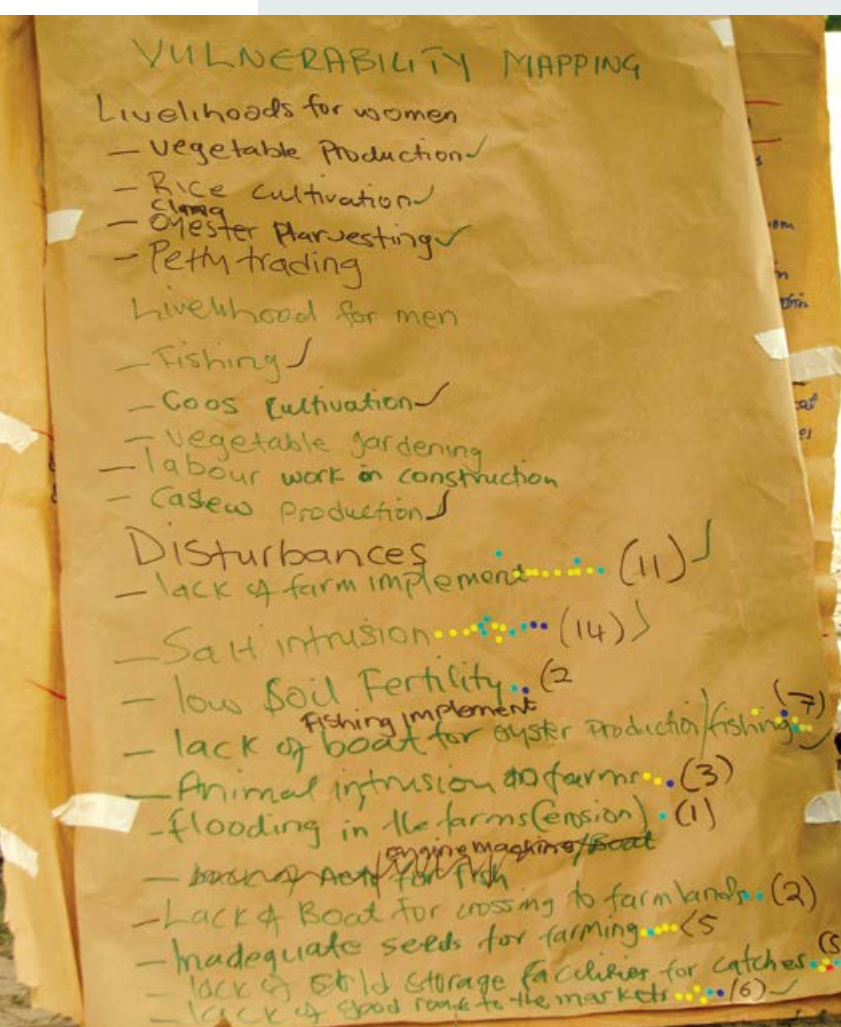 VULNERABILITY MAPPING
Livelihoods for women
- Vegetable Production✓
- Rice cultivation✓
clamg
- Oyester Harvesting✓
- Petty trading
Livelihood for men
- Fishing ✓
- Coos Cultivation✓
- Vegetable gardening
- labour work in construction
- Casew production✓
Disturbances
- lack of farm implement (11) ✓
- Salt intrusion (14) ✓
- low Soil Fertility (2
Fishing implement (7)
- lack of boat for oyster production/fishing ✓
- Animal intrusion farms (3)
- flooding in the farms (erosion) (1)
engine machine/Boat
- for fish
- Lack of Boat for crossing to farmlands (2)
- Inadequate seeds for farming (5
- lack of storage facilities for catches (5
- lack of good to the markets (6) ✓